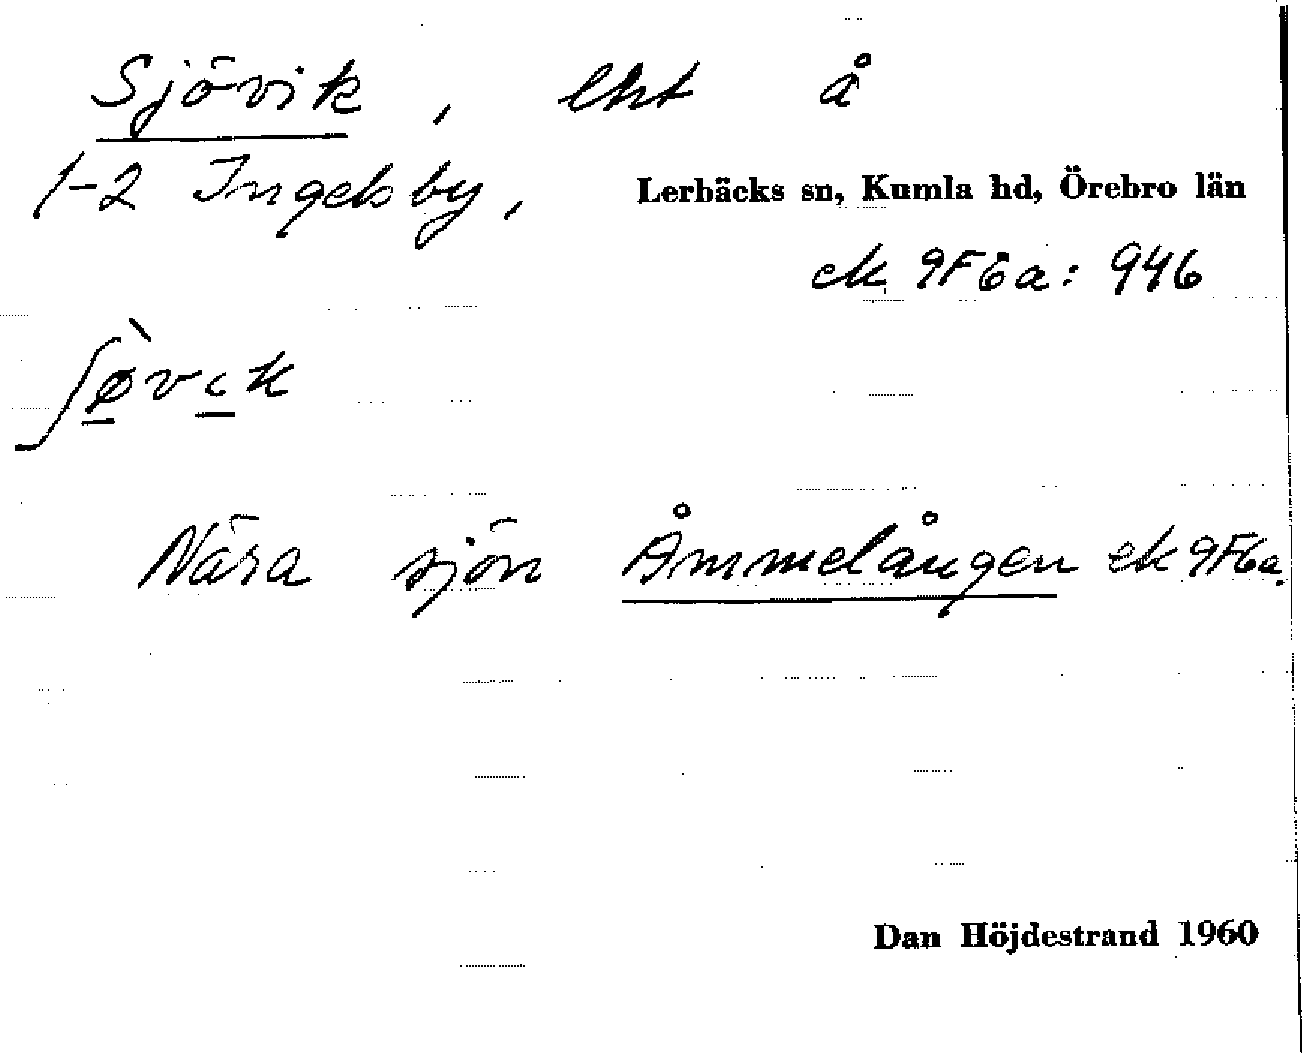 Sjövik, lht å
1-2 Ingelsby, Lerbäcks sn, Kumla hd, Örebro län
ek 9F6a: 946
ʃø̀vɩk
Nära sjön Åmmelången ek 9F6a.
Dan Höjdestrand 1960